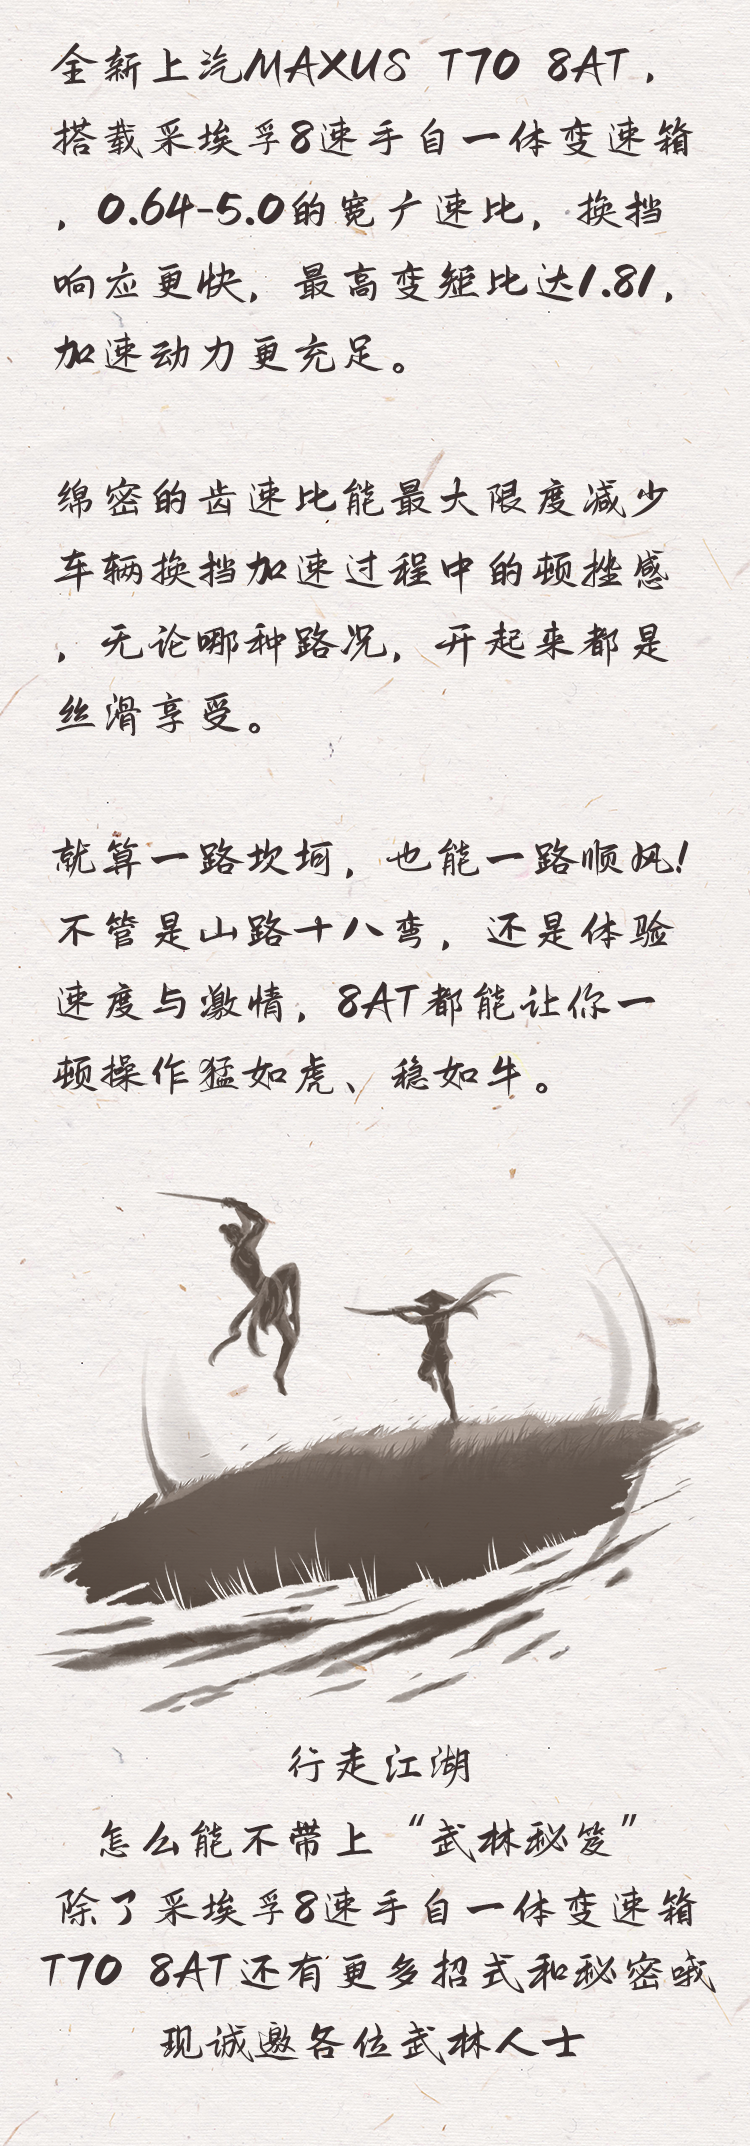 全新上汽MAXUS T70 8AT，
搭载采埃孚8速手自一体变速箱
，0.64-5.0的宽广速比，换挡
响应更快，最高变矩比达1.81，
加速动力更充足。
绵密的齿速比能最大限度减少
车辆换挡加速过程中的顿挫感
，无论哪种路况，开起来都是
丝滑享受。
就算一路坎坷，也能一路顺风！
不管是山路十八弯，还是体验
速度与激情，8AT都能让你一
顿操作猛如虎、稳如牛。
行走江湖
怎么能不带上“武林秘笈”
除了采埃孚8速手自一体变速箱
T70 8AT还有更多招式和秘密哦
现诚邀各位武林人士